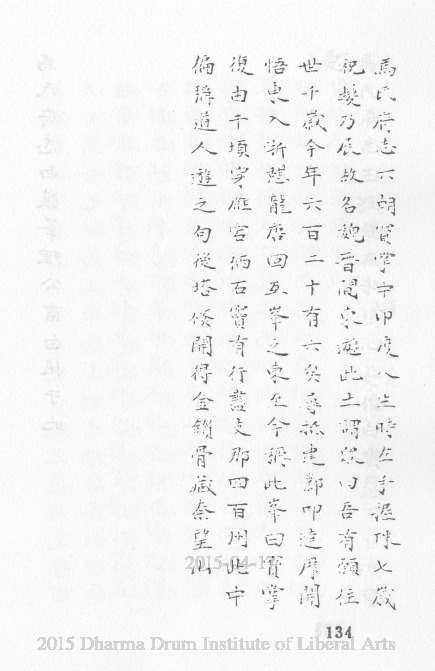 馬氏府志六朝寶掌中印度人生時左手握珠七歲
祝髮乃展故名魏晉間東遊此土謂眾曰吾有願住
世千歲今年六百二十有六矣尋抵建鄴叩達磨開
悟東入浙憩龍唐回五峯之東至今稱此峯曰寶掌
復由千頃穿雁宕栖石竇有行盡支那四百州此中
偏稱道人遊之句從塔倏開得金鎖骨藏秦望山
2015-04-17
134
2015 Dharma Drum Institute of Liberal Arts